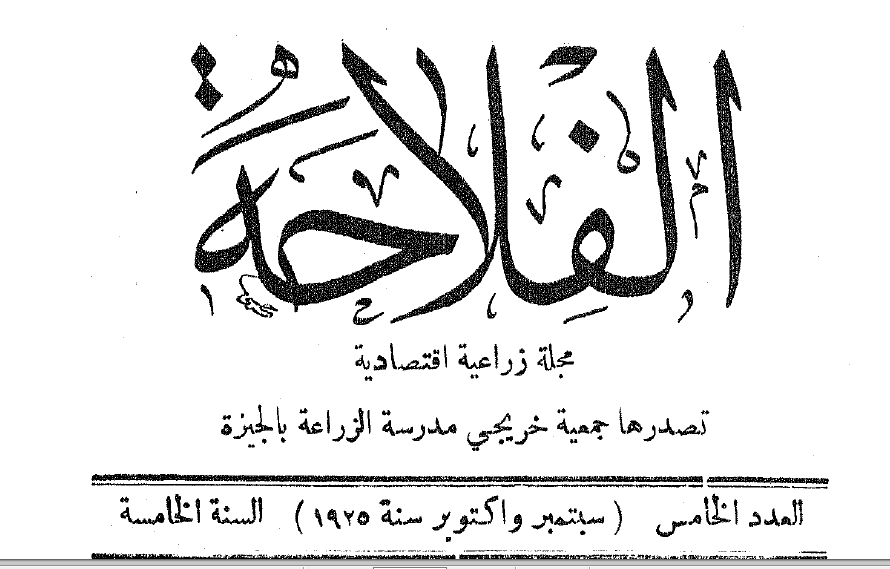 الفلاحة
مجلة زراعية اقتصادية
تصدرها جمعية خريجي مدرسة الزراعة بالجيزة
العدد الخامس ( سبتمبر واكتوبر سنة ١٩٢٥ ) السنة الخامسة